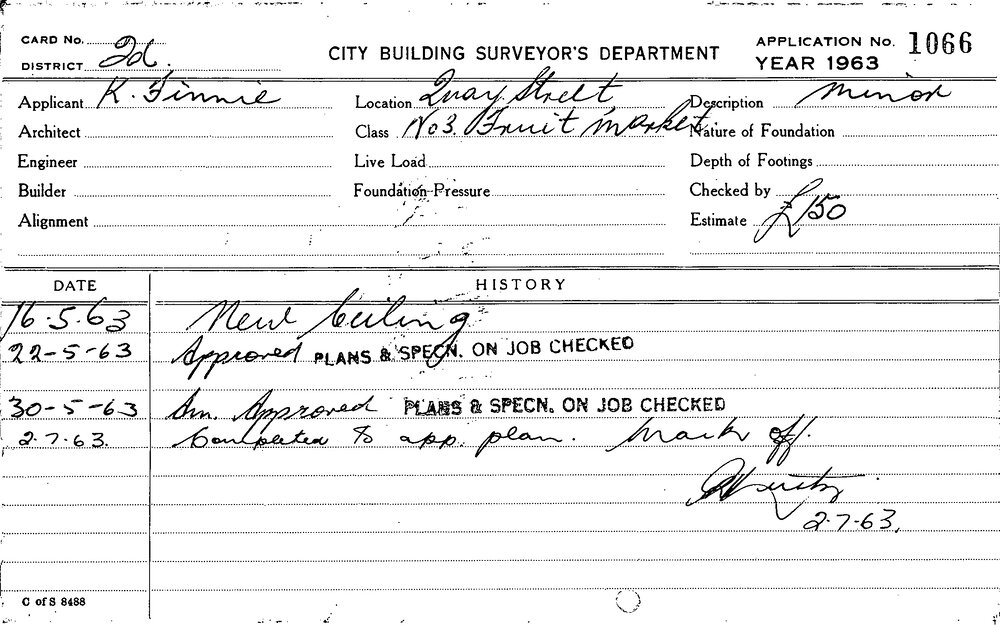 CARD No.
DISTRICT 2d.
CITY BUILDING SURVEYOR'S DEPARTMENT
APPLICATION No. 1066
YEAR 1963
Applicant K. Finnie
Location Quay Street
Description Minor
Architect
Class No 3. Fruit Market
Nature of Foundation
Engineer
Live Load
Depth of Footings
Builder
Foundation Pressure
Checked by
Alignment
Estimate £150
DATE HISTORY
16.5.63 New Ceiling
22-5-63 Approved PLANS & SPECN. ON JOB CHECKED
30-5-63 Am. Approved PLANS & SPECN. ON JOB CHECKED
2.7.63. Completed to app. plan. Mark off.
2.7.63.
C of S 8488